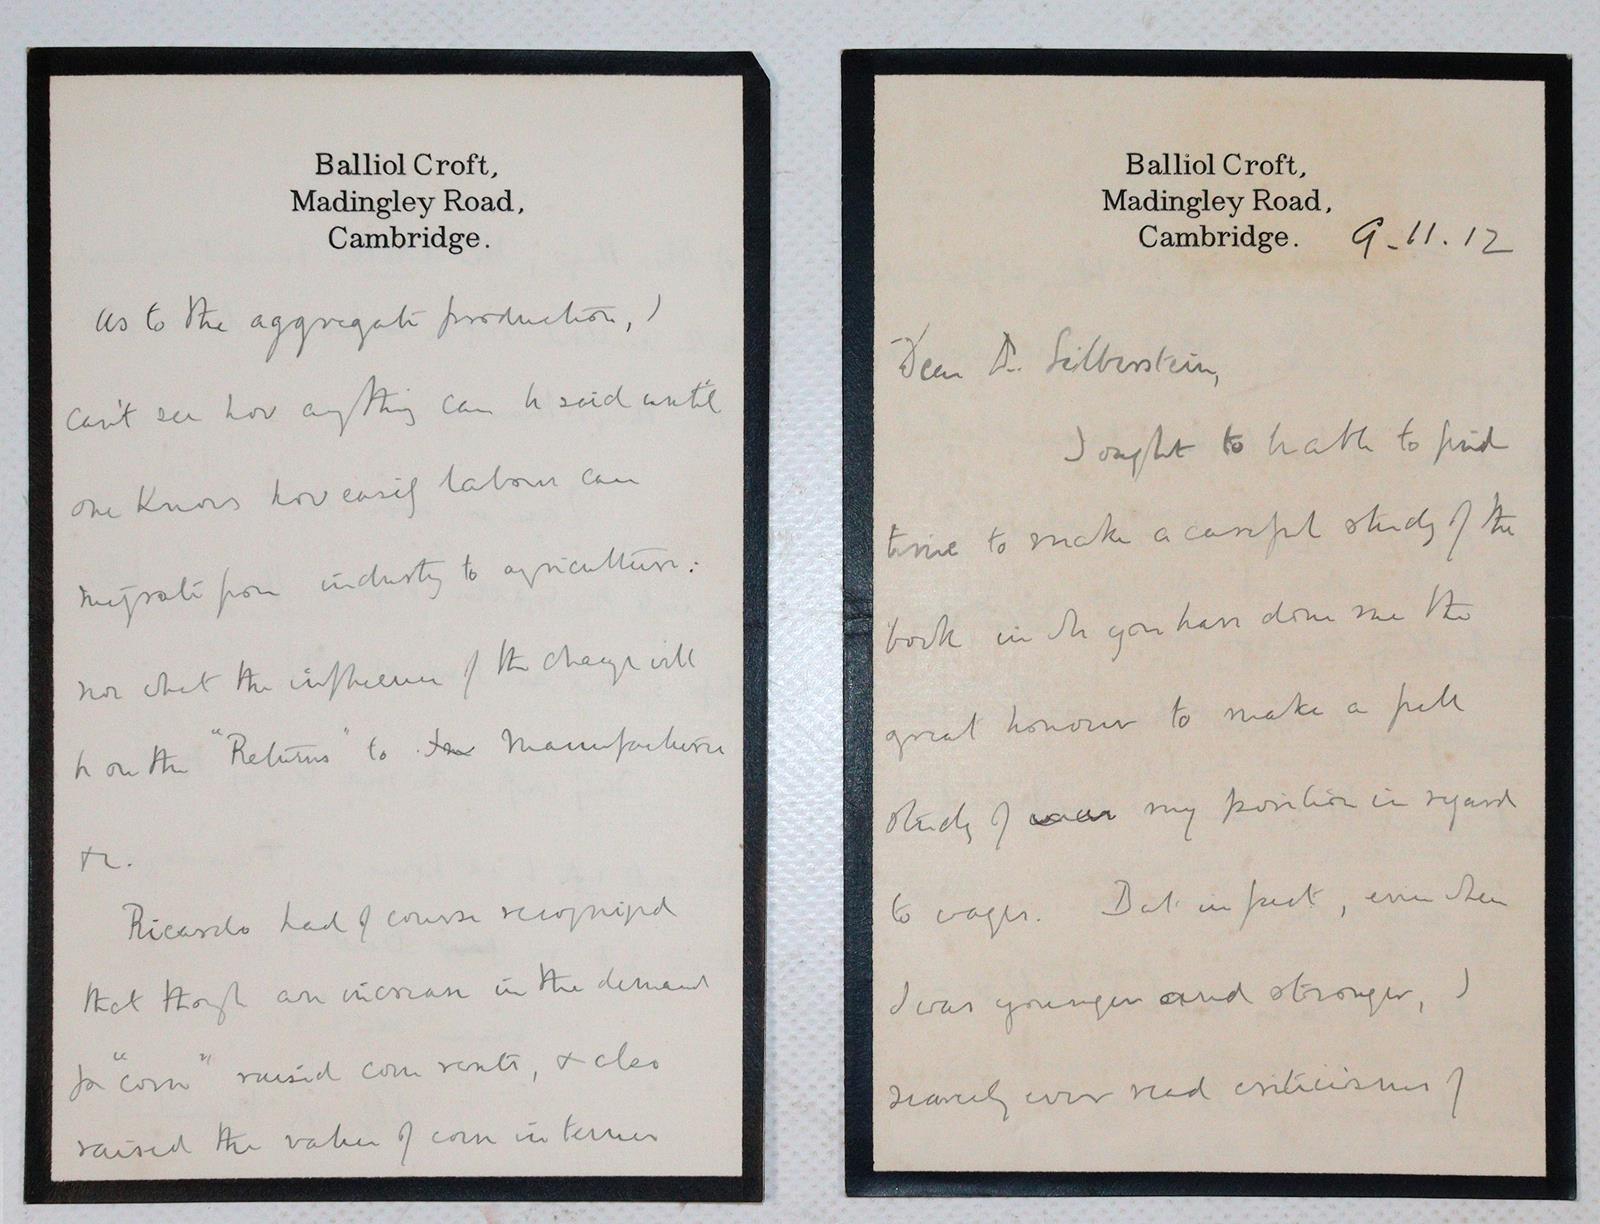 Balliol Croft,
Madingley Road,
Cambridge.
As to the aggregate production, I
can't see how anything can be said until
one knows how easily labour can
migrate from industry to agriculture:
nor what the influence of the change will
be on the "Returns" to the manufacture
&c.
Ricardo had of course recognized
that though an increase in the demand
for "corn" raised corn rents, & also
raised the value of corn in terms
Balliol Croft,
Madingley Road,
Cambridge. 9.11.12
Dear Dr. Silberstein,
I ought to be able to find
time to make a careful study of the
book in wh you have done me the
great honour to make a full
study of my position in regard
to wages. But in fact, even when
I was younger and stronger, I
scarcely ever read criticisms of